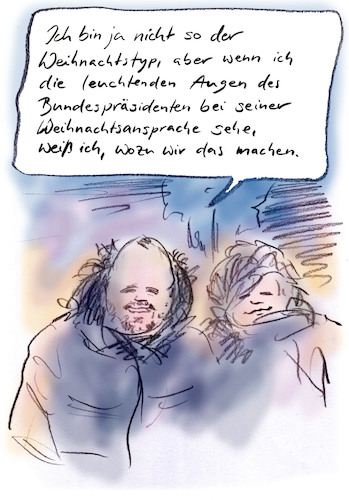 Ich bin ja nicht so der
Weihnachtstyp, aber wenn ich
die leuchtenden Augen des
Bundespräsidenten bei seiner
Weihnachtsansprache sehe,
weiß ich, wozu wir das machen.